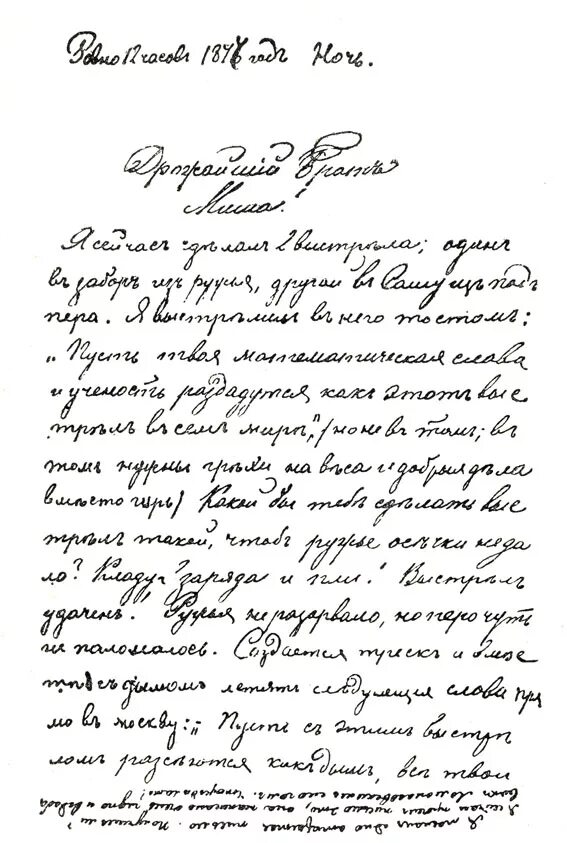 Ровно 12 часовъ 1877 годъ Ночь.
Дрожайшій Братъ
Миша!
Я сейчасъ сдѣлалъ 2 выстрѣла; одинъ
въ заборъ изъ ружья, другой въ Сашу изъ подъ
пера. Я выстрѣлилъ въ него тостомъ:
„Пусть твоя математическая слава
и ученость раздадутся какъ этотъ выс
трѣлъ въ семъ мирѣ," /но не въ томъ; въ
томъ нужны грѣхи на вѣса и добрыя дѣла
вмѣсто гирь/ Какой бы тебѣ сдѣлать выс
трѣлъ такой, чтобъ ружье осѣчки не да
ло? Кладу заряда и пли! Выстрѣлъ
удаченъ! Ружья не разорвало, но перо чуть
не паломалось. Создается трескъ и вмѣс
тѣ съ дымомъ летятъ слѣдующія слова пря
мо въ москву: „Пусть съ этимъ выстрѣ
ломъ разсѣются какъ дымъ, всѣ твои